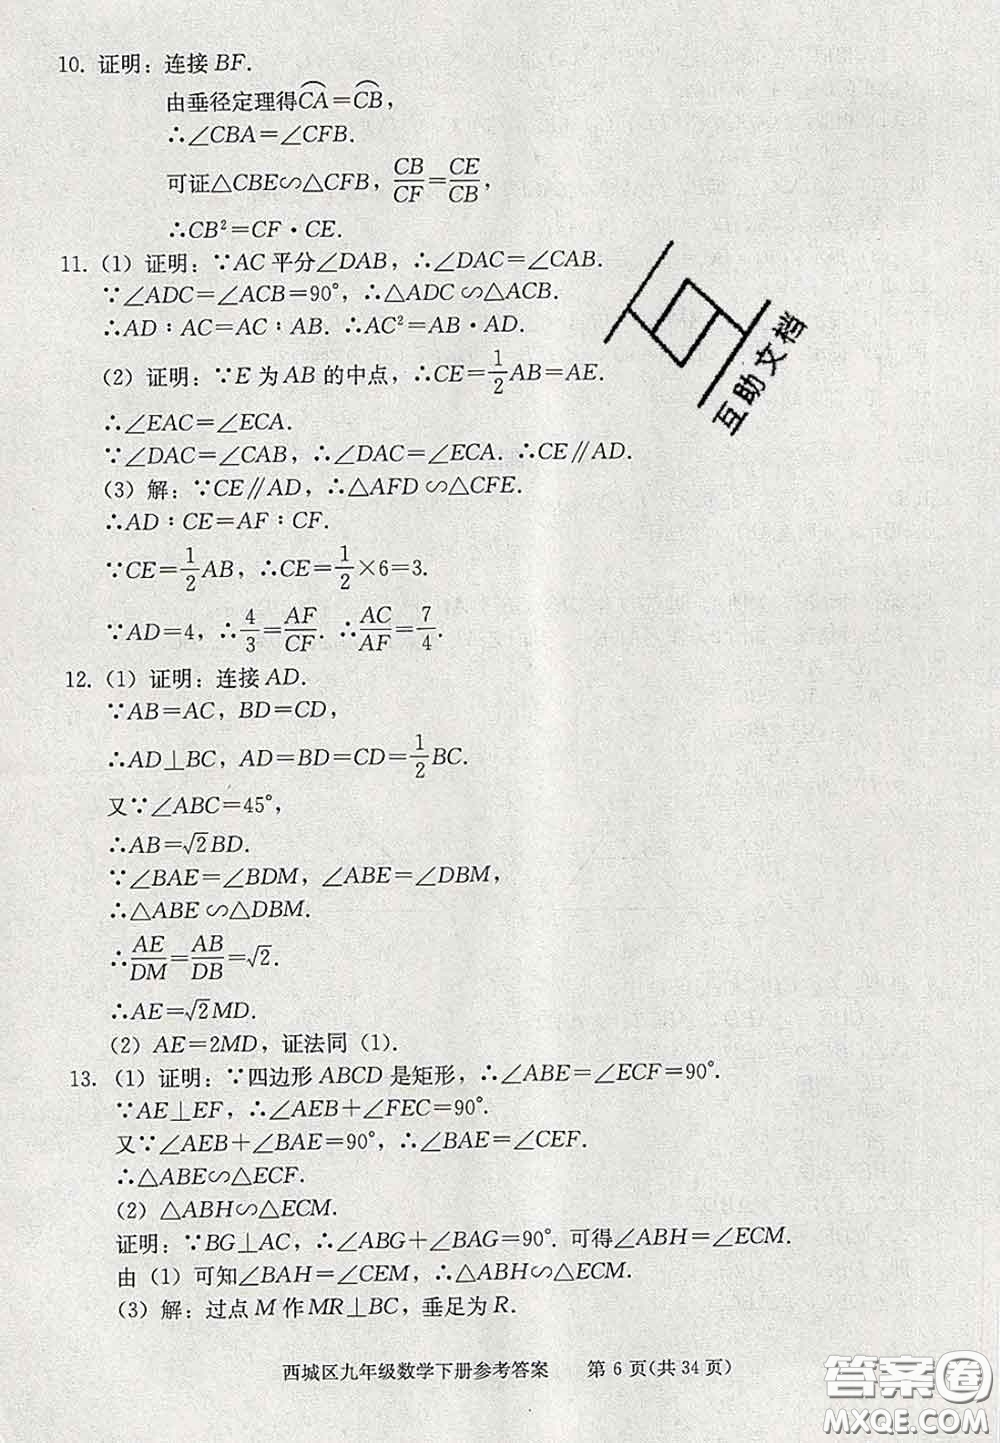 10. 证明：连接 BF.
由垂径定理得⌒CA=⌒CB，
∴∠CBA=∠CFB.
可证△CBE∽△CFB，CB/CF=CE/CB，
∴CB²=CF·CE.
11.（1）证明：∵AC 平分∠DAB，∴∠DAC=∠CAB.
∵∠ADC=∠ACB=90°，∴△ADC∽△ACB.
∴AD：AC=AC：AB. ∴AC²=AB·AD.
（2）证明：∵E 为 AB 的中点，∴CE=1/2AB=AE.
∴∠EAC=∠ECA.
∵∠DAC=∠CAB，∴∠DAC=∠ECA. ∴CE∥AD.
（3）解：∵CE∥AD，∴△AFD∽△CFE.
∴AD：CE=AF：CF.
∵CE=1/2AB，∴CE=1/2×6=3.
∵AD=4，∴4/3=AF/CF. ∴AC/AF=7/4.
12.（1）证明：连接 AD.
∵AB=AC，BD=CD，
∴AD⊥BC，AD=BD=CD=1/2BC.
又∵∠ABC=45°，
∴AB=√2BD.
∵∠BAE=∠BDM，∠ABE=∠DBM，
∴△ABE∽△DBM.
∴AE/DM=AB/DB=√2.
∴AE=√2MD.
（2）AE=2MD，证法同（1）.
13.（1）证明：∵四边形 ABCD 是矩形，∴∠ABE=∠ECF=90°.
∵AE⊥EF，∴∠AEB+∠FEC=90°.
又∵∠AEB+∠BAE=90°，∴∠BAE=∠CEF.
∴△ABE∽△ECF.
（2）△ABH∽△ECM.
证明：∵BG⊥AC，∴∠ABG+∠BAG=90°. 可得∠ABH=∠ECM.
由（1）可知∠BAH=∠CEM，∴△ABH∽△ECM.
（3）解：过点 M 作 MR⊥BC，垂足为 R.
西城区九年级数学下册参考答案 第 6 页(共 34 页)
互助文档
答案圈
MXQE.COM